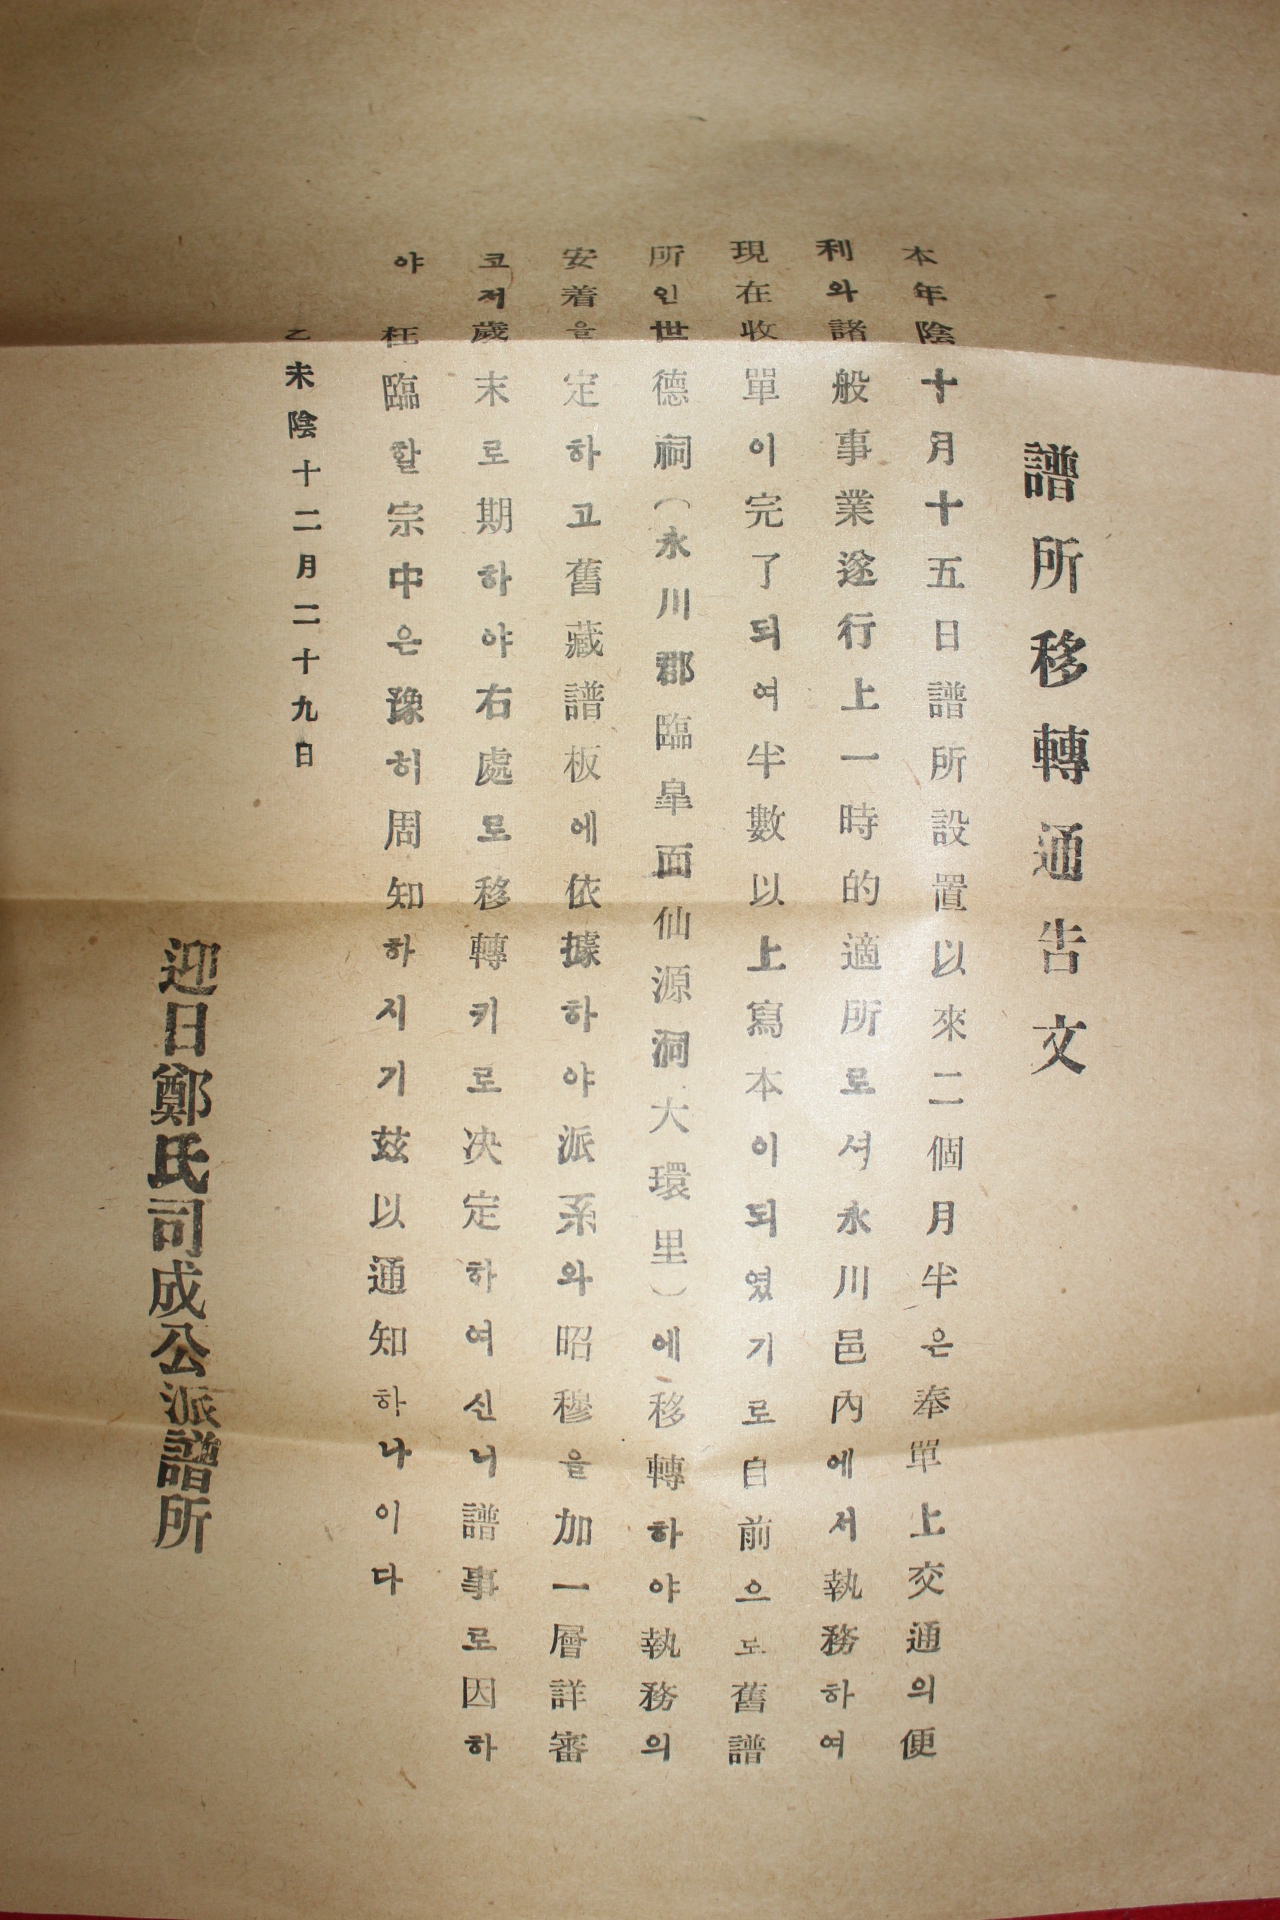 譜所移轉通告文
本年陰十月十五日譜所設置以來二個月半은奉單上交通의便
利와諸般事業遂行上一時的適所로셔永川邑內에서執務하여
現在收單이完了되여半數以上寫本이되였기로自前으로舊譜
所인世德祠(永川郡臨皐面仙源洞大環里)에移轉하야執務의
安着을定하고舊藏譜板에依據하야派系와昭穆을加一層詳審
코저歲末로期하야右處로移轉키로决定하여신니譜事로因하
야枉臨할宗中은豫히周知하시기玆以通知하나이다
乙未陰十二月二十九日
迎日鄭氏司成公派譜所